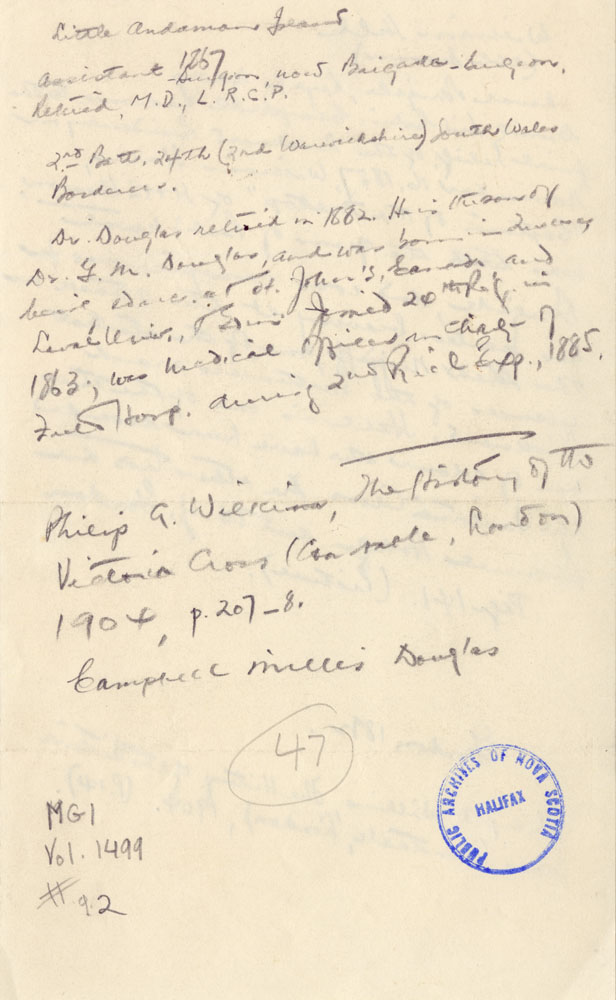 Little Andaman Island
1867
Assistant-Surgeon, now Brigade-Surgeon,
Retired, M.D., L.R.C.P.
2nd Batt. 24th (2nd Warwickshire) South Wales
Borderers.
Dr. Douglas retired in 1882. He is the son of
Dr. G. M. Douglas, and was born in Quebec
being educ. at St. John's, Canada and
Laval Univ., & Edin. Joined 24th Reg. in
1863; was medical officer in charge of
Field Hosp. during 2nd Riel Exp., 1885.
Philip A. Wilkins, The History of the
Victoria Cross (Constable, London)
1904, p. 207-8.
Campbell Millis Douglas
47
PUBLIC ARCHIVES OF NOVA SCOTIA
HALIFAX
MG1
Vol. 1499
# 92